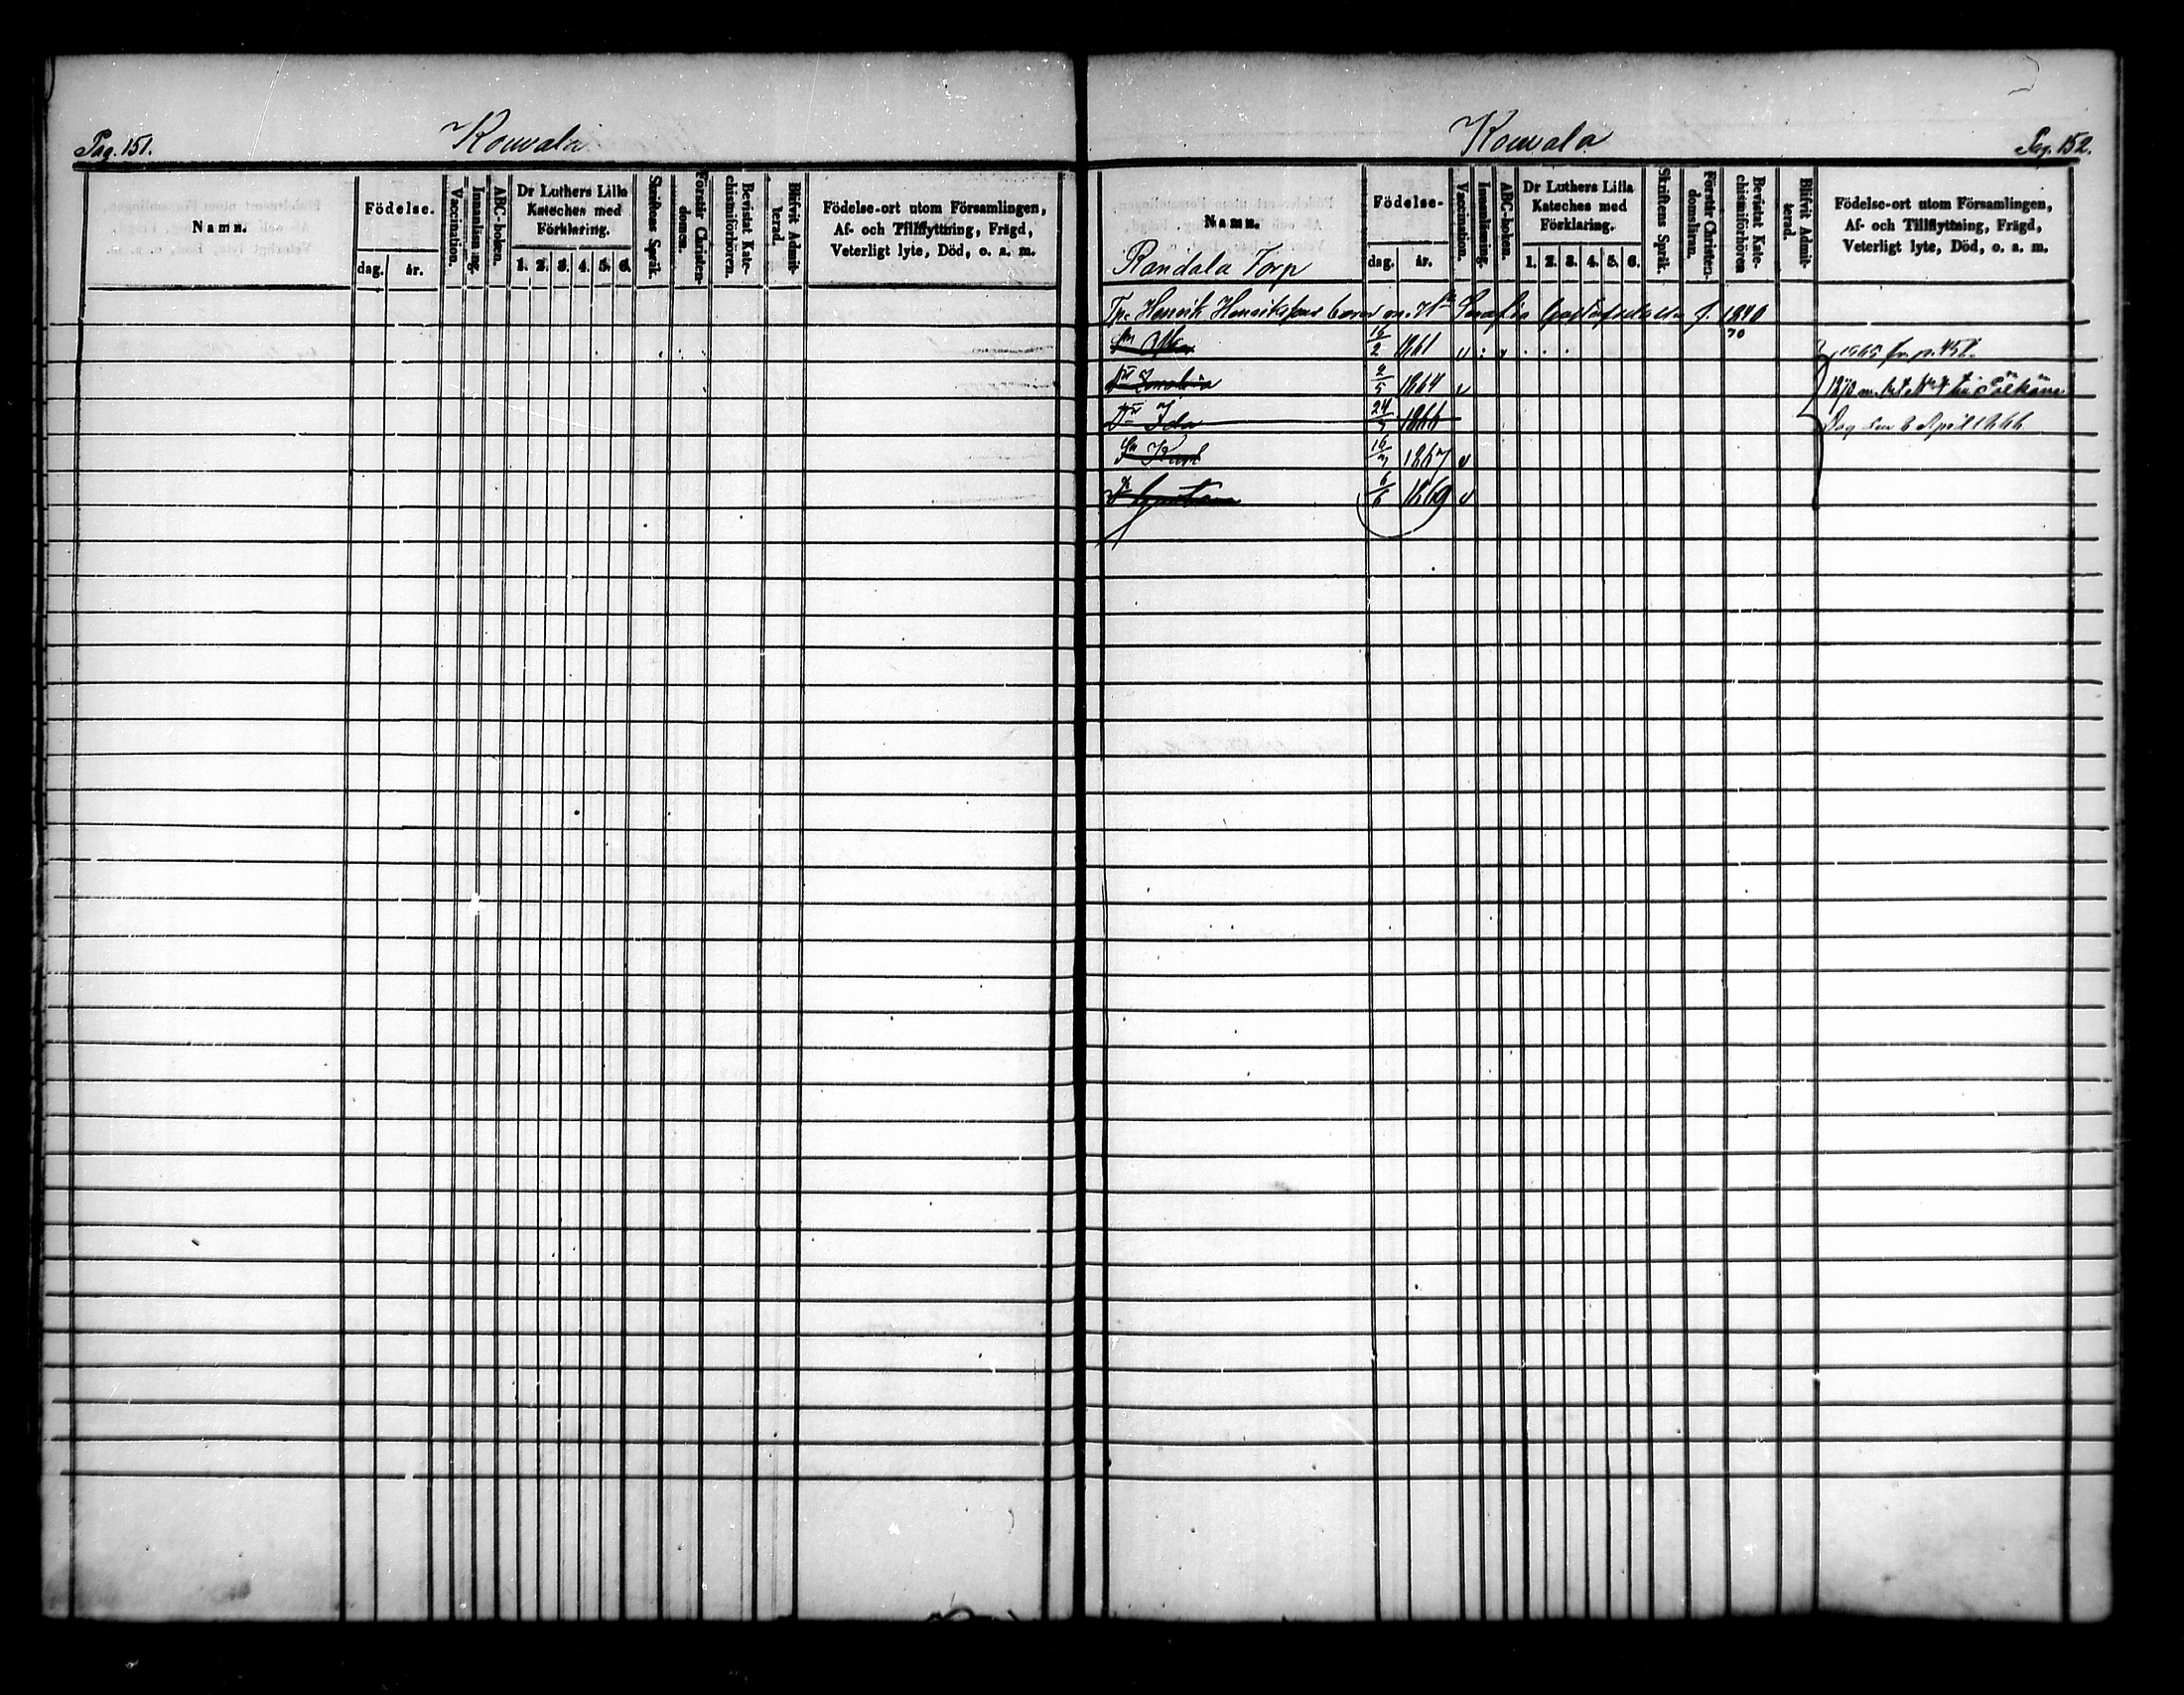 Pag. 151.
Kouvala
Namn.
Födelse.
dag.
år.
Vaccination.
Innanläsning.
ABC-boken.
Dr Luthers Lilla
Kateches med
Förklaring.
1. 2. 3. 4. 5. 6.
Skriftens Språk.
Förstår Christen-
domen.
Bevistat Kate-
chismiförhören.
Blifvit Admit-
terad.
Födelse-ort utom Församlingen,
Af- och Tillflyttning, Frägd,
Veterligt lyte, Död, o. a. m.
Kouvala
Pag. 152.
Namn.
Födelse.
dag.
år.
Vaccination.
Innanläsning.
ABC-boken.
Dr Luthers Lilla
Kateches med
Förklaring.
1. 2. 3. 4. 5. 6.
Skriftens Språk.
Förstår Christen-
domsläran.
Bevistat Kate-
chismiförhören
Blifvit Admit-
terad.
Födelse-ort utom Församlingen,
Af- och Tillflyttning, Frägd,
Veterligt lyte, Död, o. a. m.
Randala Torp
Tp. Henrik Henrikssons barn m. Serafia f. 1840
70
Sn 16/2 1861 v
1865 fr. p. 451.
Dr 2/5 1864 v
1870 m. bet. No till Pälkäne
Dr Ida 24/3 1866
Dog den 8 April 1866
Sn Karl 16/3 1867 v
Dr Gustava 6/6 1869 v